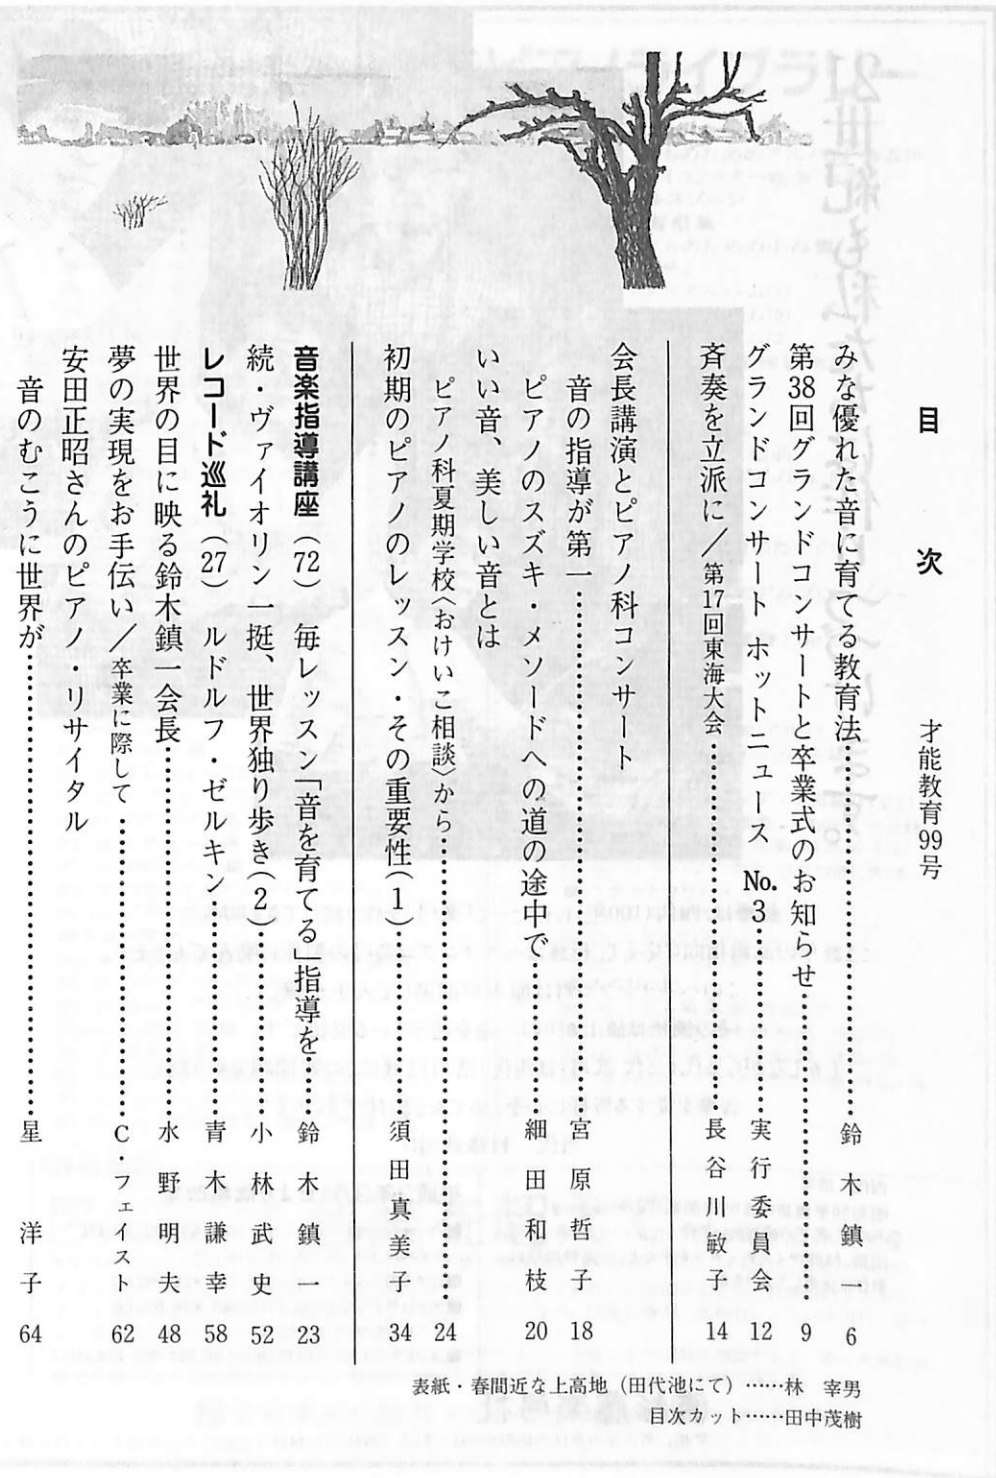 目次　才能教育99号
みな優れた音に育てる教育法……鈴木鎮一 6
第38回グランドコンサートと卒業式のお知らせ……9
グランドコンサート ホットニュース No.3……実行委員会 12
斉奏を立派に／第17回東海大会……長谷川敏子 14
会長講演とピアノ科コンサート
音の指導が第一……宮原哲子 18
ピアノのスズキ・メソードへの道の途中で……細田和枝 20
いい音、美しい音とは
ピアノ科夏期学校〈おけいこ相談〉から……24
初期のピアノのレッスン・その重要性(1)……須田真美子 34
音楽指導講座(72)毎レッスン「音を育てる」指導を……鈴木鎮一 23
続・ヴァイオリン一挺、世界独り歩き(2)……小林武史 52
レコード巡礼(27)ルドルフ・ゼルキン……青木謙幸 58
世界の目に映る鈴木鎮一会長……水野明夫 48
夢の実現をお手伝い／卒業に際して……C・フェイスト 62
安田正昭さんのピアノ・リサイタル
音のむこうに世界が……星洋子 64
表紙・春間近な上高地（田代池にて）……林　幸男
目次カット……田中茂樹